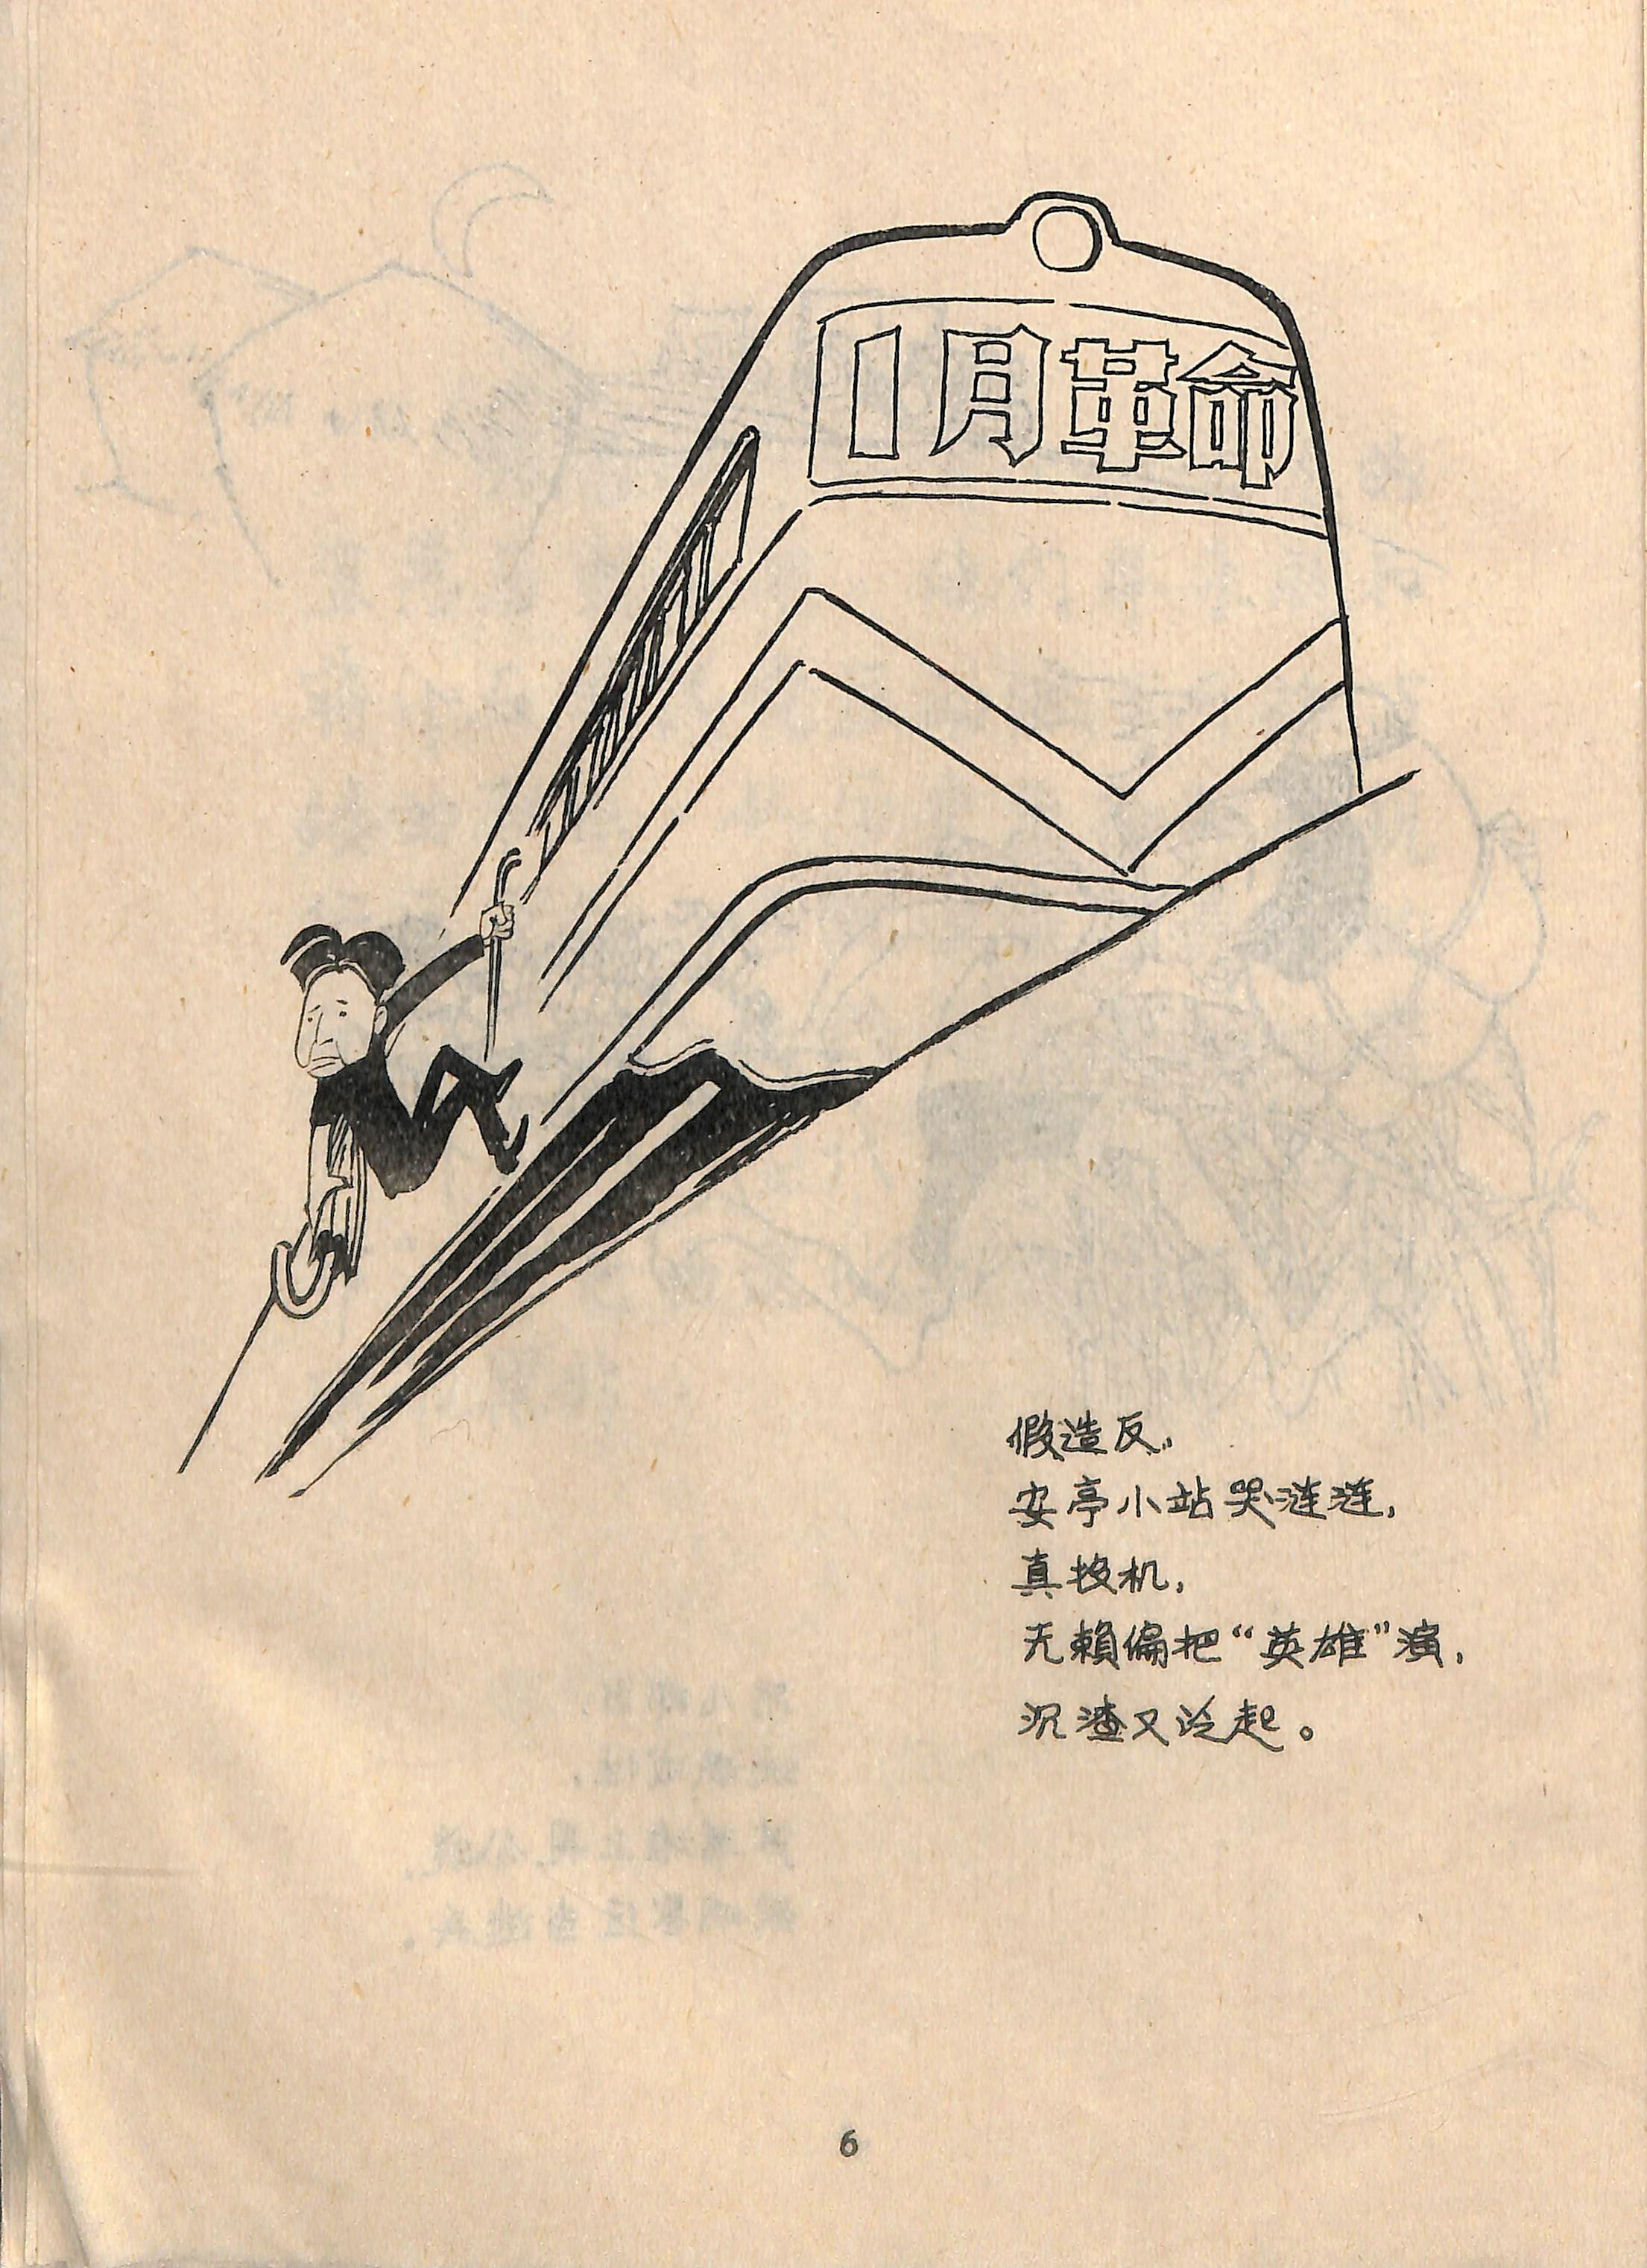 1月革命
假造反，
安亭小站哭涟涟，
真投机，
无賴偏把“英雄”演，
沉渣又泛起。
6